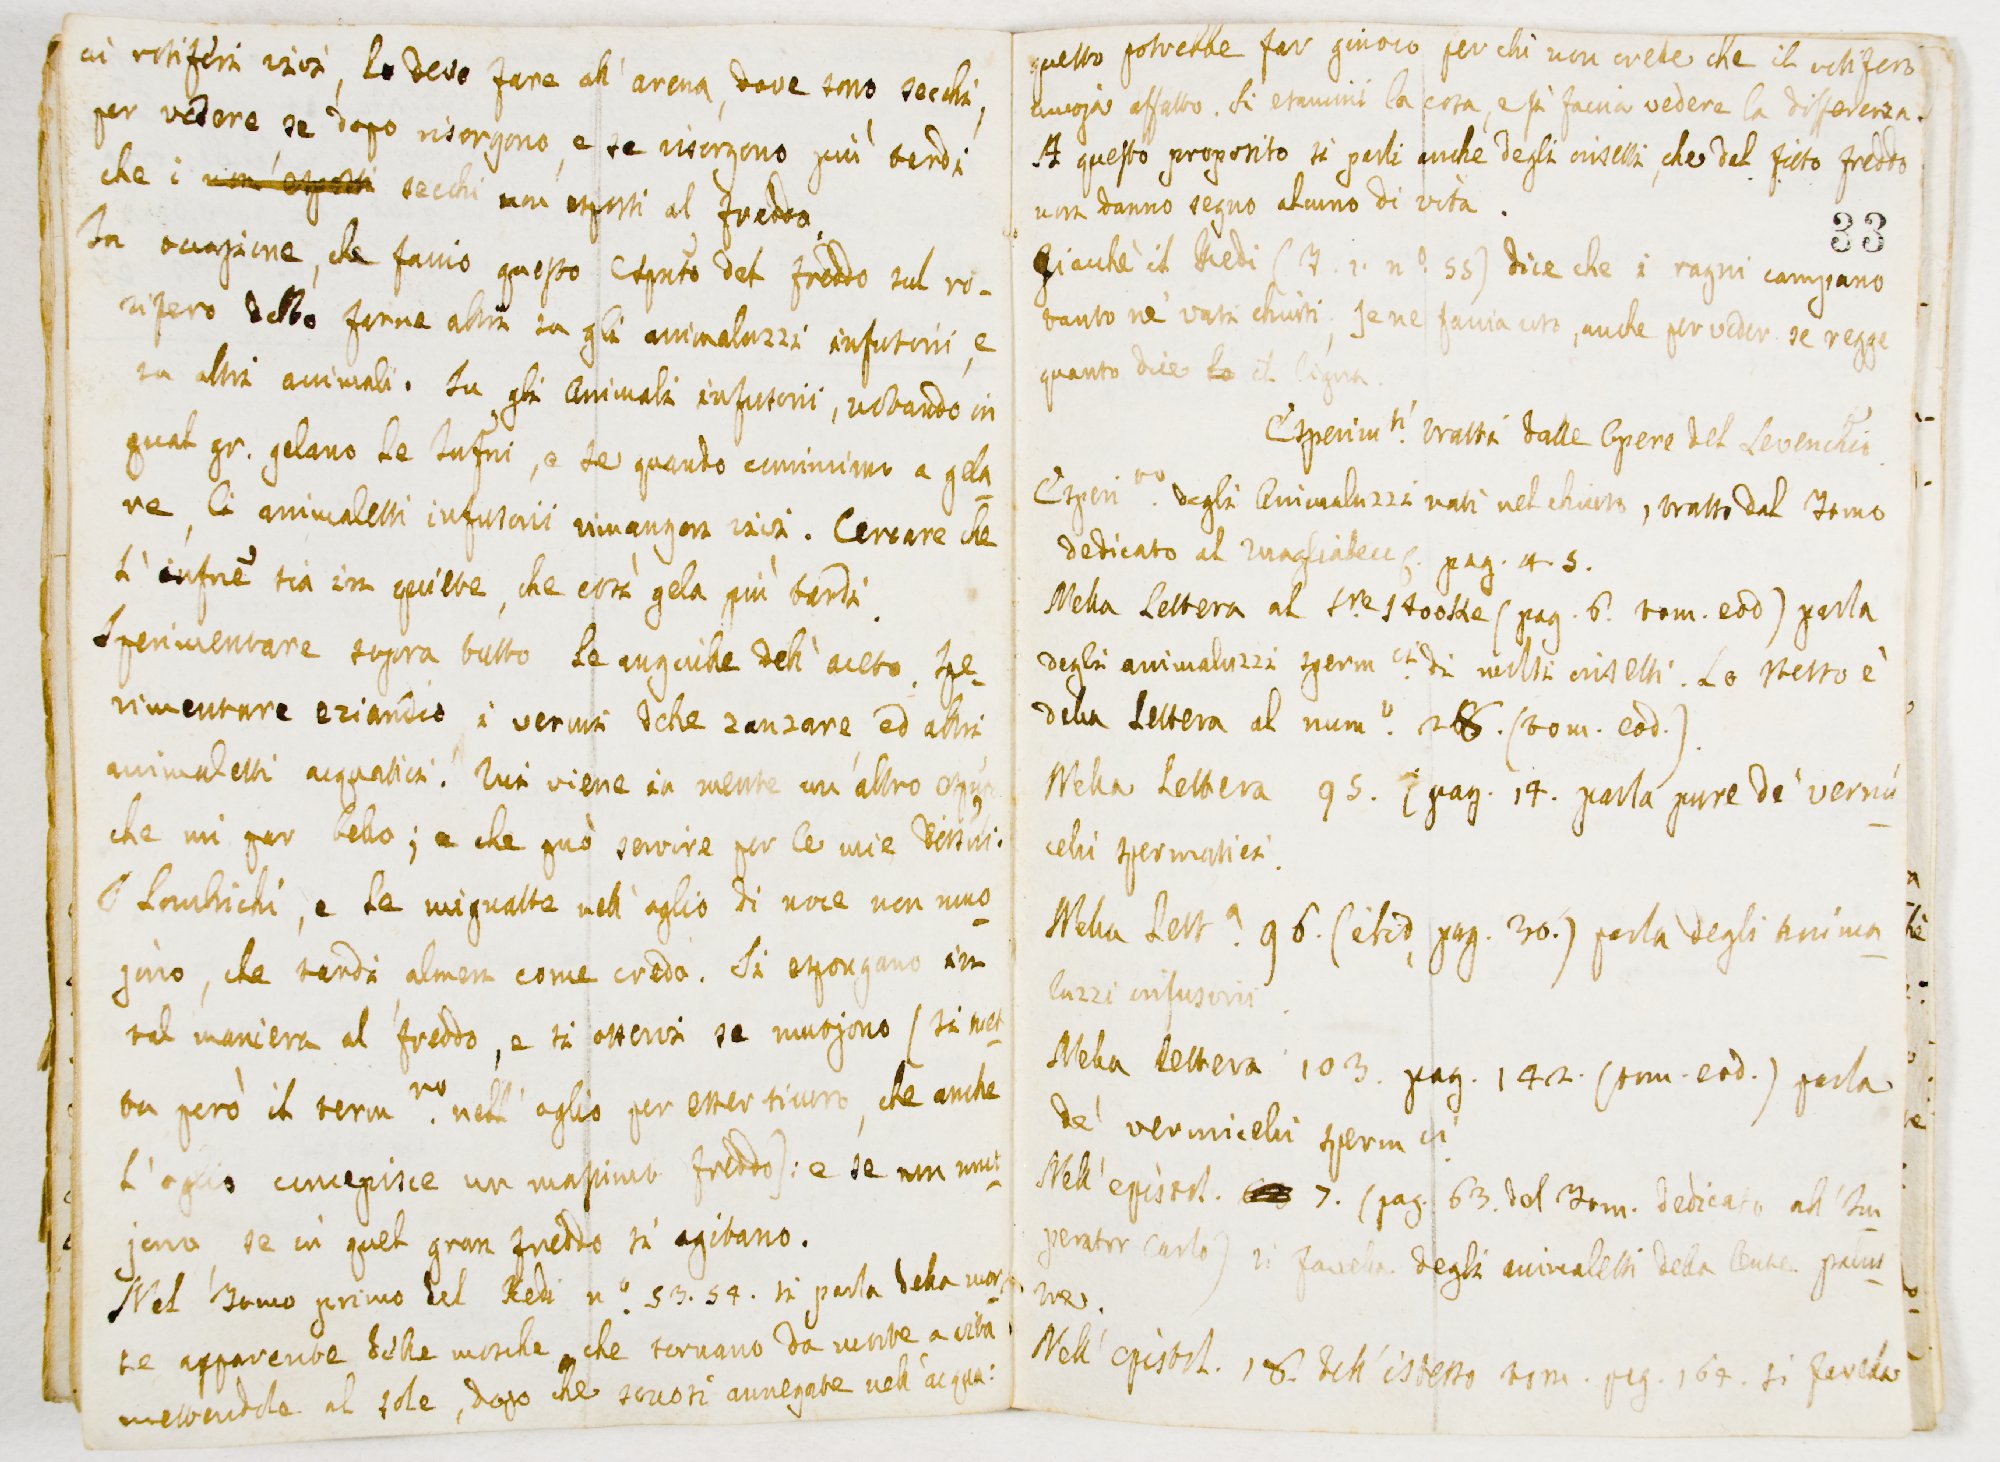 ai rotiferi vivi, lo devo fare all' arena, dove sono secchi,
per vedere se dopo risorgono, e se risorgono più tardi
che i non esposti secchi non esposti al freddo.
In occasione, che faccio questo esp.to del freddo sul ro-
tifero debbo farne altri su gli animaluzzi infusorii, e
su altri animali. Su gli Animali infusorii, notando in
qual gr. gelano le Infni, e se quando cominciano a gela-
re, li animaletti infusorii rimangon vivi. Cercare che
l' infne sia in quiete, che così gela più tardi.
Sperimentare sopra tutto le anguille dell' aceto. Spe-
rimentare eziandio i vermi delle zanzare ed altri
animaletti acquatici. Mi viene in mente un' altro
che mi par bello; e che può servire per le mie
I Lombrichi, e le mignatte nell' oglio di noce non muo-
jono, che tardi almen come credo. Si espongano in
tal maniera al freddo, e si osservi se muojono (si met-
ta però il term.ro nell' oglio per esser sicuro, che anche
l' oglio concepisce un massimo freddo): e se non muo-
jono se in quel gran freddo si agitano.
Nel Tomo primo del Redi n.º 53. 54. si parla della mor-
te apparente delle mosche, che tornano da morte a vita
mettendole al sole, dopo che sonosi annegate nell' acqua:
questo potrebbe far giuoco per chi non crede che il rotifero
muoja affatto. Si esamini la cosa, e si faccia vedere la differenza.
A questo proposito si parli anche degli insetti, che dal fitto freddo
non danno segno alcuno di vita.
33
Giacchè il Redi (T. 1. n.º 55) dice che i ragni campano
tanto ne' vasi chiusi, se ne faccia uso, anche per veder se regge
quanto dice lo il
Esperim.ti tratti dalle Opere del Levenchio.
Esperi.to degli Animaluzzi nati nel chiuso, tratto dal Tomo
dedicato al Magliabec pag. 4. 5.
Nella Lettera al S.re Hooke (pag. 6. tom. eod) parla
degli animaluzzi sperm.ci di molti insetti. Lo stesso è
della Lettera al num.º 26. (tom. eod.).
Nella Lettera 95. (pag. 14. parla pure de' vermi-
celli spermatici.
Nella Lett.a 96. (ibid, pag. 30.) parla degli Anima-
luzzi infusorii.
Nella Lettera 103. pag. 142. (tom. eod.) parla
de' vermicelli sperm.ci
Nell' epistol. 7. (pag. 63. del Tom. dedicato all' Im-
perator Carlo) si favella degli animaletti della lente palus-
tre.
Nell' epistol. 18. dell' istesso tom. pag. 164. si favella